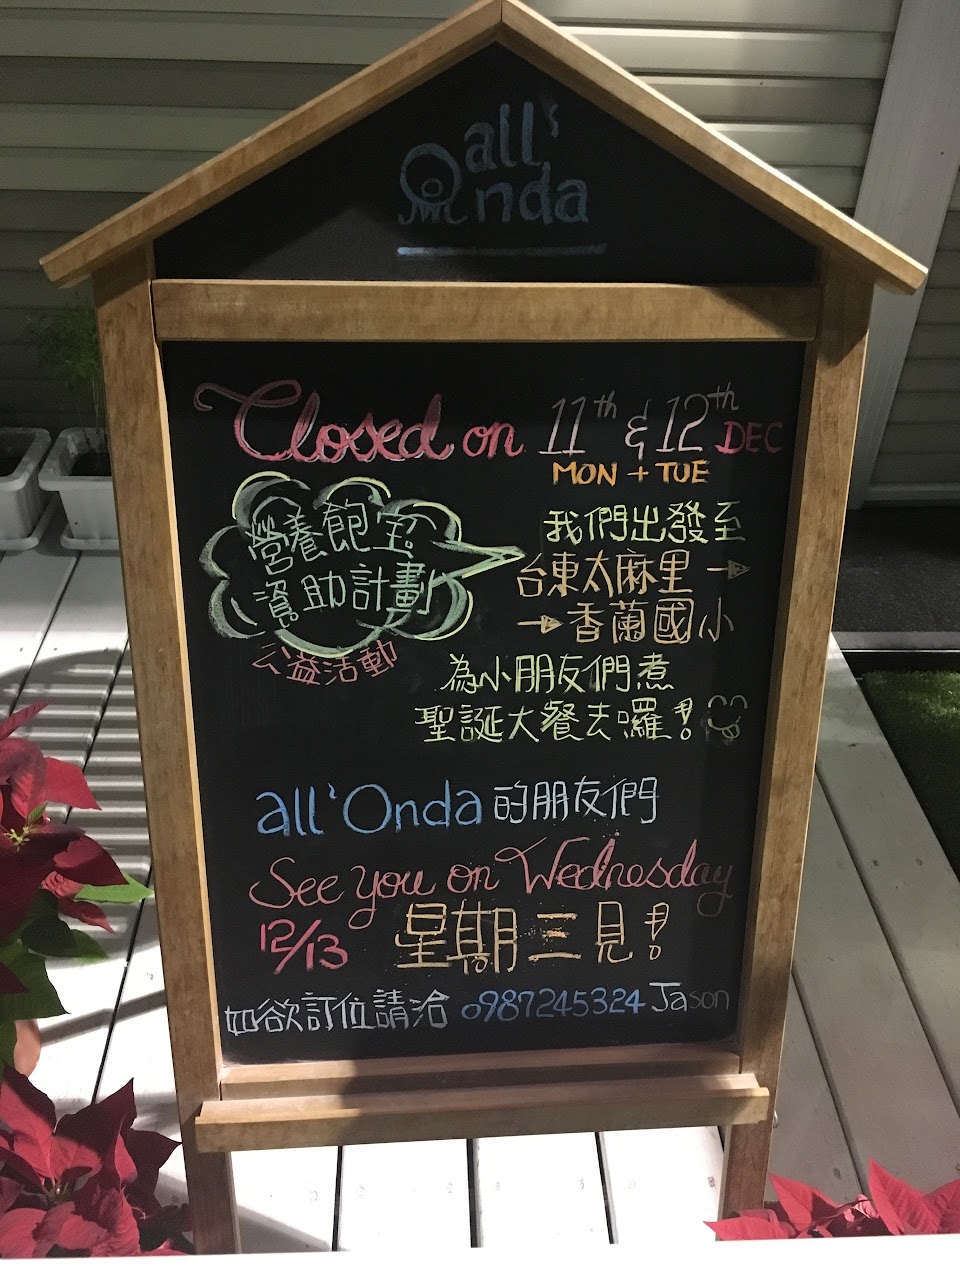 all'
Onda
Closed on 11th & 12th DEC
MON + TUE
營養飽寶
資助計劃
公益活動
我們出發至
台東太麻里→
→香蘭國小
為小朋友們煮
聖誕大餐去囉!
all'Onda的朋友們
See you on Wednesday
12/13 星期三見!
如欲訂位請洽 0987245324 Jason